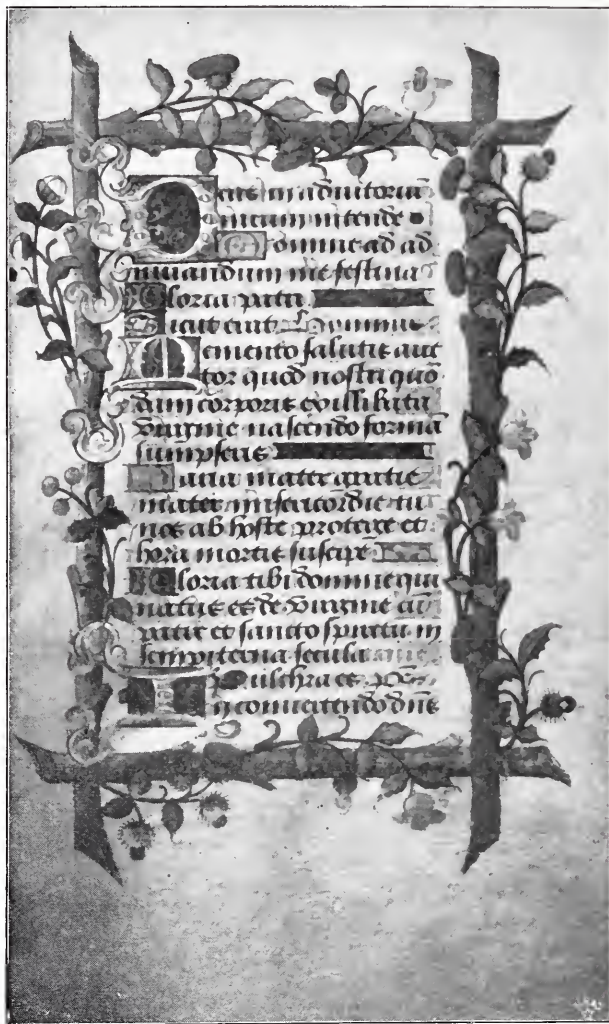 Deus in adiutoriū
meum intende
Domine ad ad
iuuandum me festina
Gloria patri
Sicut erat Hymnus
Memento salutis auc
tor quod nostri quō
dam corporis ex illibata
virgine nascendo formā
sumpseris
Maria mater gratie
mater misericordie tu
nos ab hoste protege et
hora mortis suscipe
Gloria tibi domine qui
natus es de virgine cū
patre et sancto spiritu in
sempiterna secula ame
Pulchra es
In conuertendo dūs